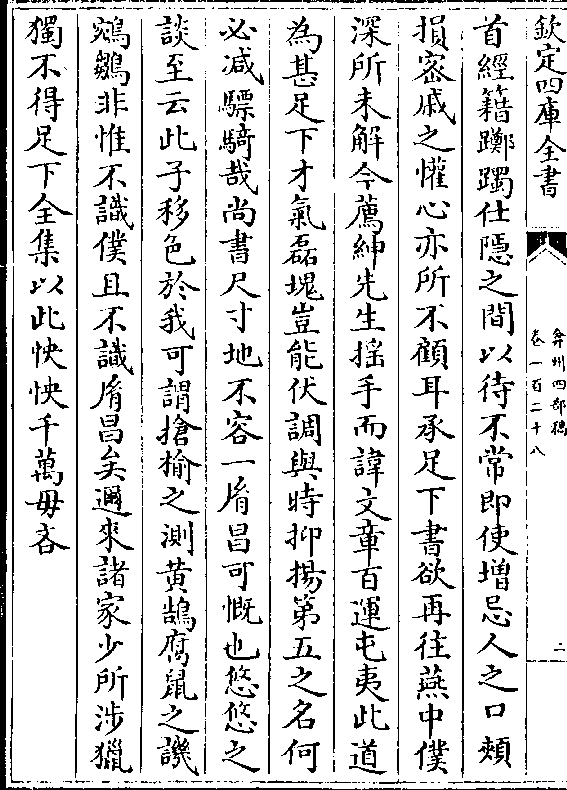 欽定四庫全書
弇州四部稿
卷一百二十八
二
首經籍躑躅仕隱之間以待不常即使增忌人之口頰
損宻戚之懽心亦所不顧耳承足下書欲再往燕中僕
深所未解今薦紳先生揺手而諱文章百運屯夷此道
為甚足下才氣磊塊豈能伏調與時抑揚第五之名何
必减驃騎哉尚書尺寸地不容一㡽昌可慨也悠悠之
談至云此子移色於我可謂搶榆之測黄鵠腐鼠之譏
鵷鶵非惟不識僕且不識㡽昌矣邇來諸家少所涉獵
獨不得足下全集以此怏怏千萬毋吝